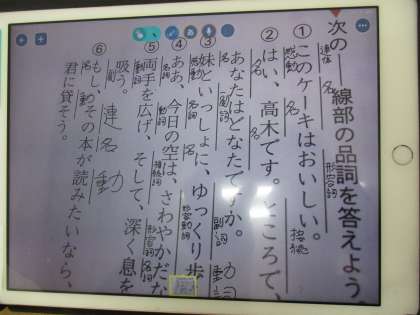 次の――線部の品詞を答えよう
①このケーキはおいしい。
連体
名
形容詞
②はい、高木です。ところで、
感動
名
接続
あなたはどなたですか。
名
名
③妹といっしょに、ゆっくり歩
名
副詞
副詞
動詞
④ああ、今日の空は、さわやかだな
感動
名
名
形容動詞
⑤両手を広げ、そして、深く息を
名
動詞
接続詞
形容詞
名詞
吸う。
動詞
⑥もし、その本が読みたいなら、
副
連
名
動
君に貸そう。
名
動